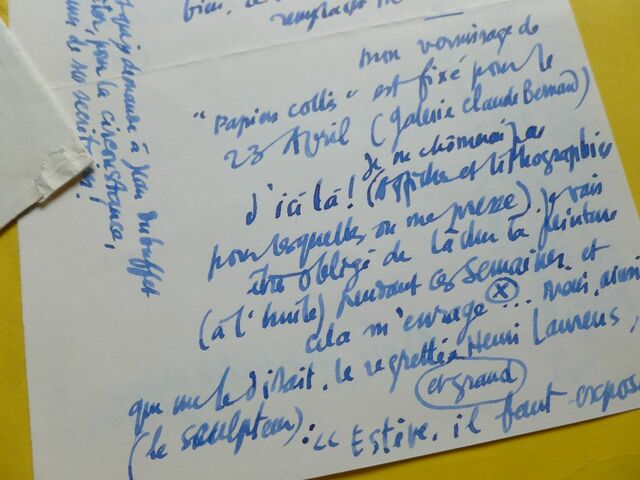 bien, ce
remplacer
mon vernissage de
"Papiers collés" est fixé pour le
23 Avril (galerie Claude Bernard)
d'ici là! Je ne chômerai pas
(affiches et lithographies
pour lesquelles on me presse). Je vais
être obligé de lâcher la peinture
(à l'huile) pendant ces semaines et
cela m'enrage (x) ... Mais, ainsi
que me le disait, le regretté Henri Laurens,
et grand
(le sculpteur) : << Estève. il faut expose
demandé à Jean Dubuffet
pour la circonstance,
un de ses secrétaires!